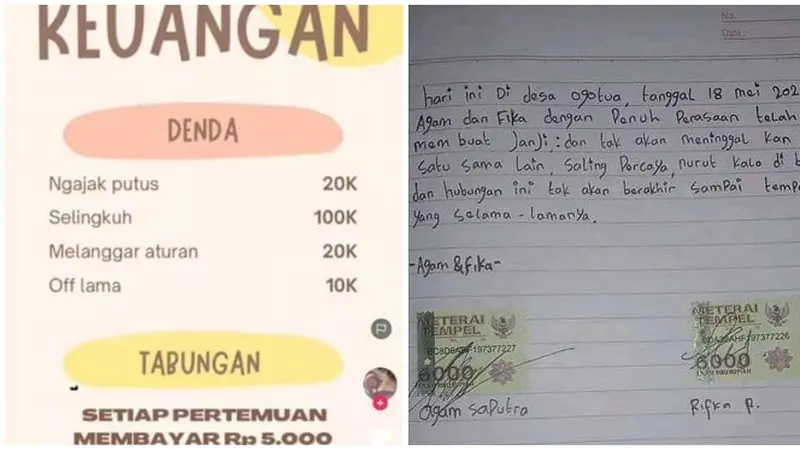 KEUANGAN
DENDA
Ngajak putus 20K
Selingkuh 100K
Melanggar aturan 20K
Off lama 10K
TABUNGAN
SETIAP PERTEMUAN
MEMBAYAR Rp 5.000
No.
Date:
hari ini Di desa ogotua, tanggal 18 mei 202
Agam dan Fika dengan Penuh Perasaan telah
mem buat Janji : dan tak akan meninggal kan
satu sama lain, saling Percaya, nurut kalo di b
dan hubungan ini tak akan berakhir samPai tempo
yang selama-lamanya.
-Agam & fika-
METERAI
TEMPEL
197377227
6000
ENAM RIBU RUPIAH
METERAI
TEMPEL
197377226
6000
ENAM RIBU RUPIAH
Agam saPutra
Rifka P.